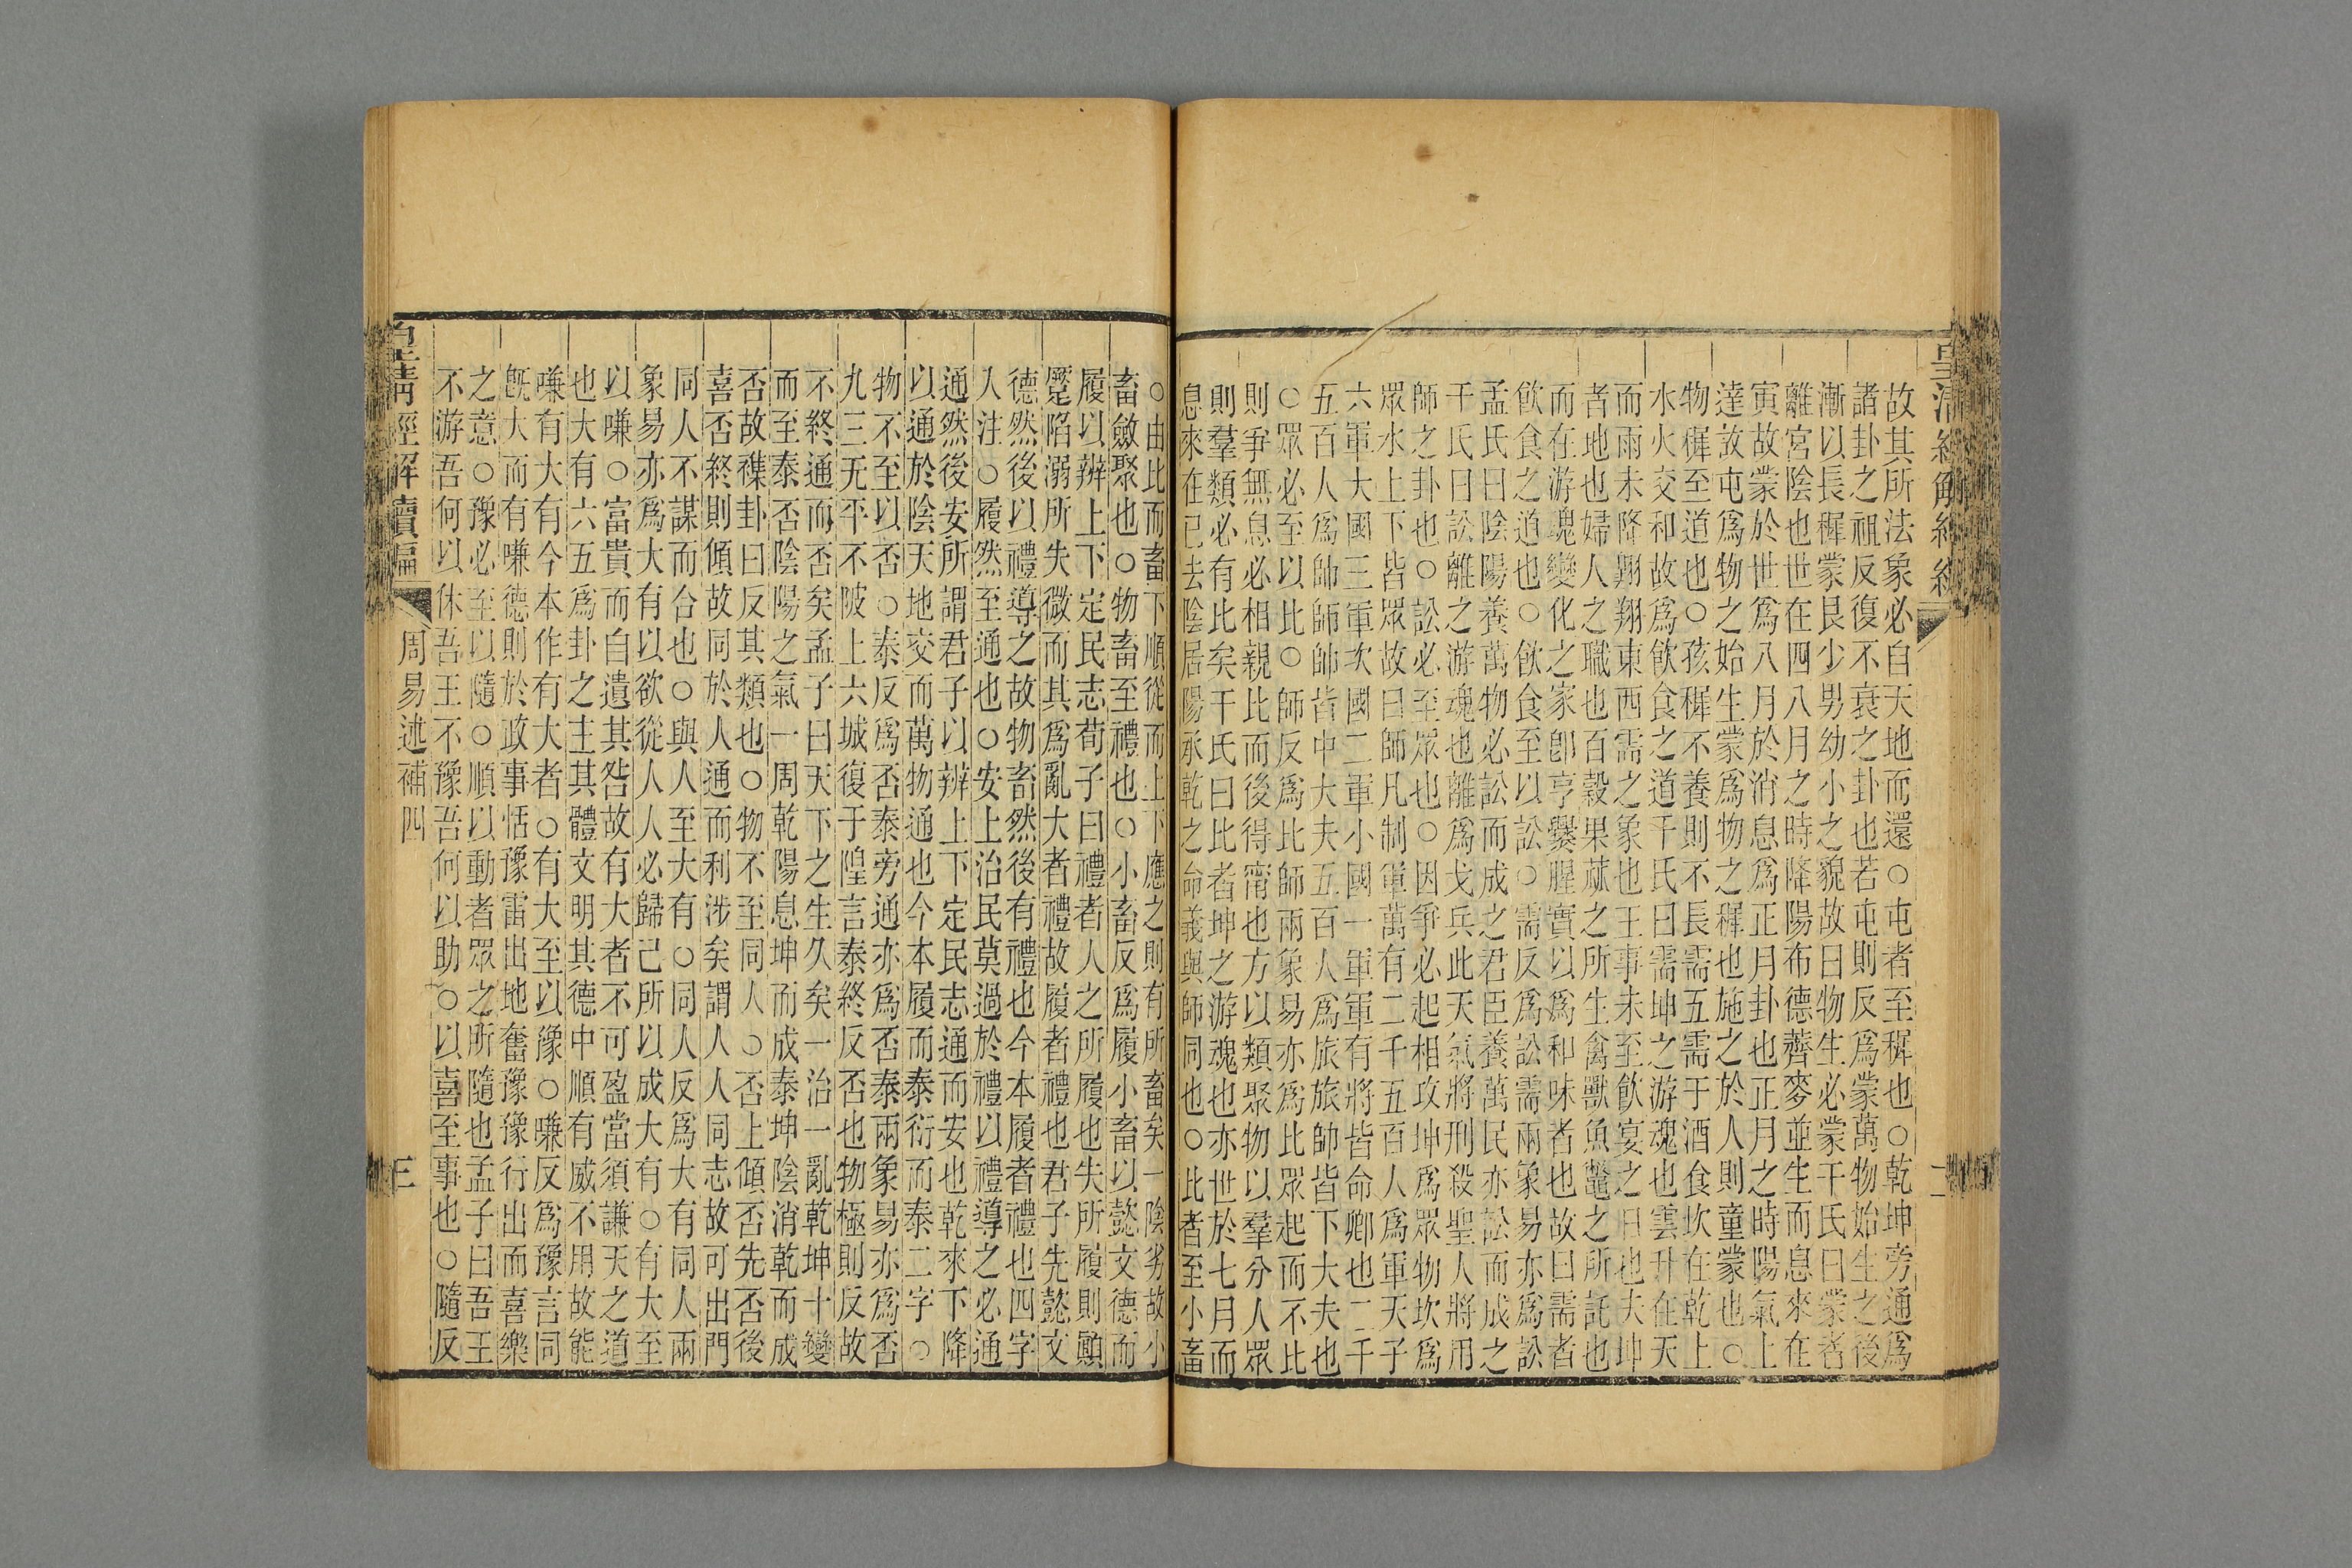 故其所法象必自天地而還○屯者至稺也○乾坤旁通爲
諸卦之祖反復不衰之卦也若屯則反爲蒙萬物始生之後
漸以長稺蒙艮少男幼小之貌故曰物生必蒙干氏曰蒙者
離宮陰也世在四八月之時降陽布德薺麥並生而息來在
寅故蒙於世爲八月於消息爲正月卦也正月之時陽氣上
達故屯爲物之始生蒙爲物之稺也施之於人則童蒙也○
物稺至道也○孩稺不養則不長需五需于酒食坎在乾上
水火交和故爲飮食之道干氏曰需坤之游魂也雲升在天
而雨未降翺翔東西需之象也王事未至飮宴之日也夫坤
者地也婦人之職也百穀果蓏之所生禽獸魚鼈之所託也
而在游魂變化之家卽亨爨腥實以爲和味者也故曰需者
飮食之道也○飮食至以訟○需反爲訟需兩象易亦爲訟
孟氏曰陰陽養萬物必訟而成之君臣養萬民亦訟而成之
干氏曰訟離之游魂也離爲戈兵此天氣將刑殺聖人將用
師之卦也○訟必至眾也○因爭必起相攻坤爲眾物坎爲
眾水上下皆眾故曰師凡制軍萬有二千五百人爲軍天子
六軍大國三軍次國二軍小國一軍軍有將皆命卿也二千
五百人爲師師帥皆中大夫五百人爲旅旅帥皆下大夫也
○眾必至以比○師反爲比師兩象易亦爲比眾起而不比
則爭無息必相親比而後得甯也方以類聚物以羣分人眾
則羣類必有比矣干氏曰比者坤之游魂也亦世於七月而
息來在巳去陰居陽承乾之命義與師同也○比者至小畜
○由比而畜下順從而上下應之則有所畜矣一陰劣故小
畜斂聚也○物畜至禮也○小畜反爲履小畜以懿文德而
履以辨上下定民志荀子曰禮者人之所履也失所履則顚
蹷陷溺所失微而其爲亂大者禮故履者禮也君子先懿文
德然後以禮導之故物畜然後有禮也今本履者禮也四字
入注○履然至通也○安上治民莫過於禮以禮導之必通
通然後安所謂君子以辨上下定民志通而安也乾來下降
以通於陰天地交而萬物通也今本履而泰衍而泰二字○
物不至以否○泰反爲否泰旁通亦爲否泰兩象易亦爲否
九三无平不陂上六城復于隍言泰終反否也物極則反故
不終通而否矣孟子曰天下之生久矣一治一亂乾坤十變
而至泰否陰陽之氣一周乾陽息坤而成泰坤陰消乾而成
否故襍卦曰反其類也○物不至同人○否上傾否先否後
喜否終則傾故同於人通而利涉矣謂人人同志故可出門
同人不謀而合也○與人至大有○同人反爲大有同人兩
象易亦爲大有以欲從人人必歸己所以成大有○有大至
以嗛○富貴而自遺其咎故有大者不可盈當須謙天之道
也大有六五爲卦之主其體文明其德中順有威不用故能
嗛有大有今本作有大者○有大至以豫○嗛反爲豫言同
旣大而有嗛德則於政事恬豫雷出地奮豫豫行出而喜樂
之意○豫必至以隨○順以動者眾之所隨也孟子曰吾王
不游吾何以休吾王不豫吾何以助○以喜至事也○隨反
皇淸經解續編
周易述補四
三